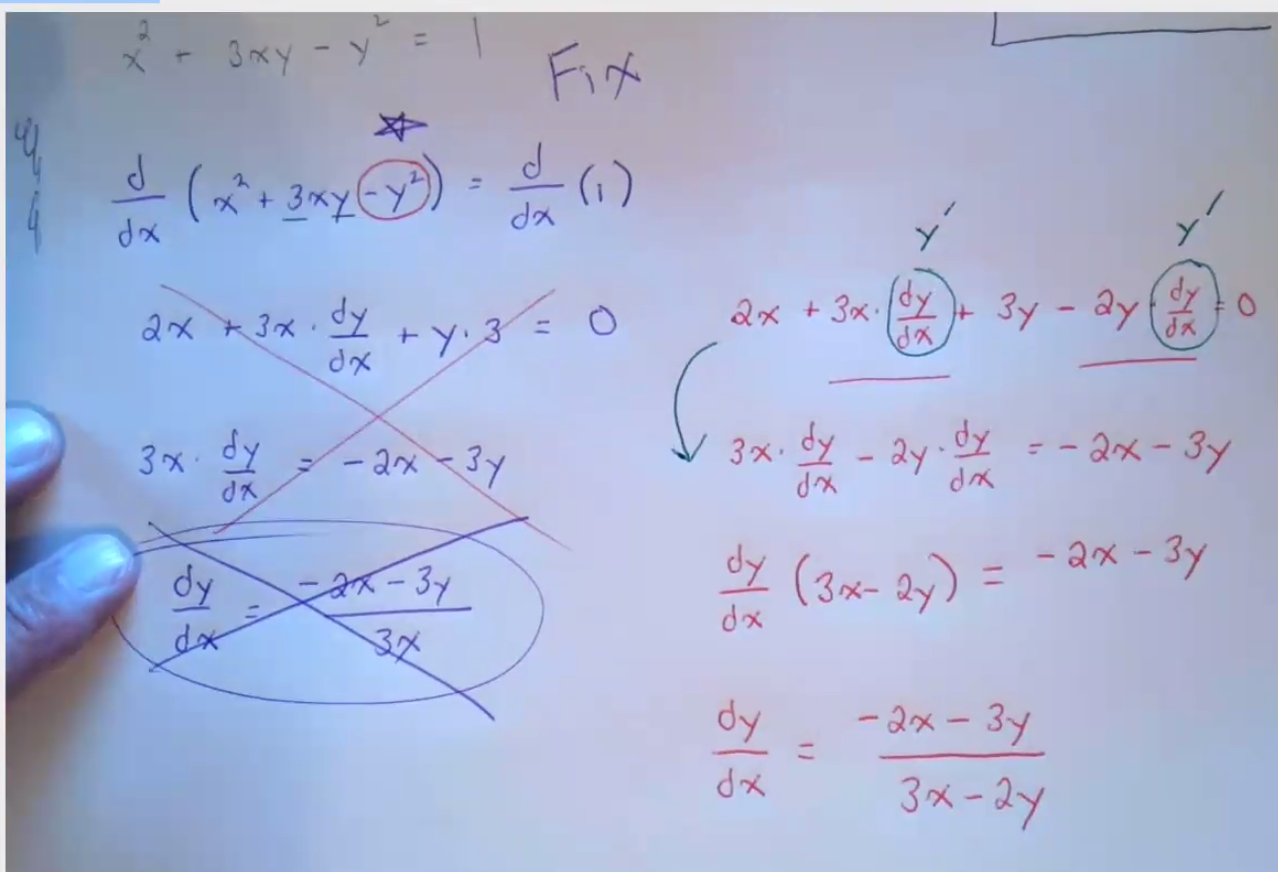 x² + 3xy - y² = 1
Fix
d/dx (x² + 3xy - y²) = d/dx (1)
2x + 3x · dy/dx + y · 3 = 0
3x · dy/dx = -2x - 3y
dy/dx = (-2x - 3y)/(3x)
y′ y′
2x + 3x · dy/dx + 3y - 2y · dy/dx = 0
3x · dy/dx - 2y · dy/dx = -2x - 3y
dy/dx (3x - 2y) = -2x - 3y
dy/dx = (-2x - 3y)/(3x - 2y)